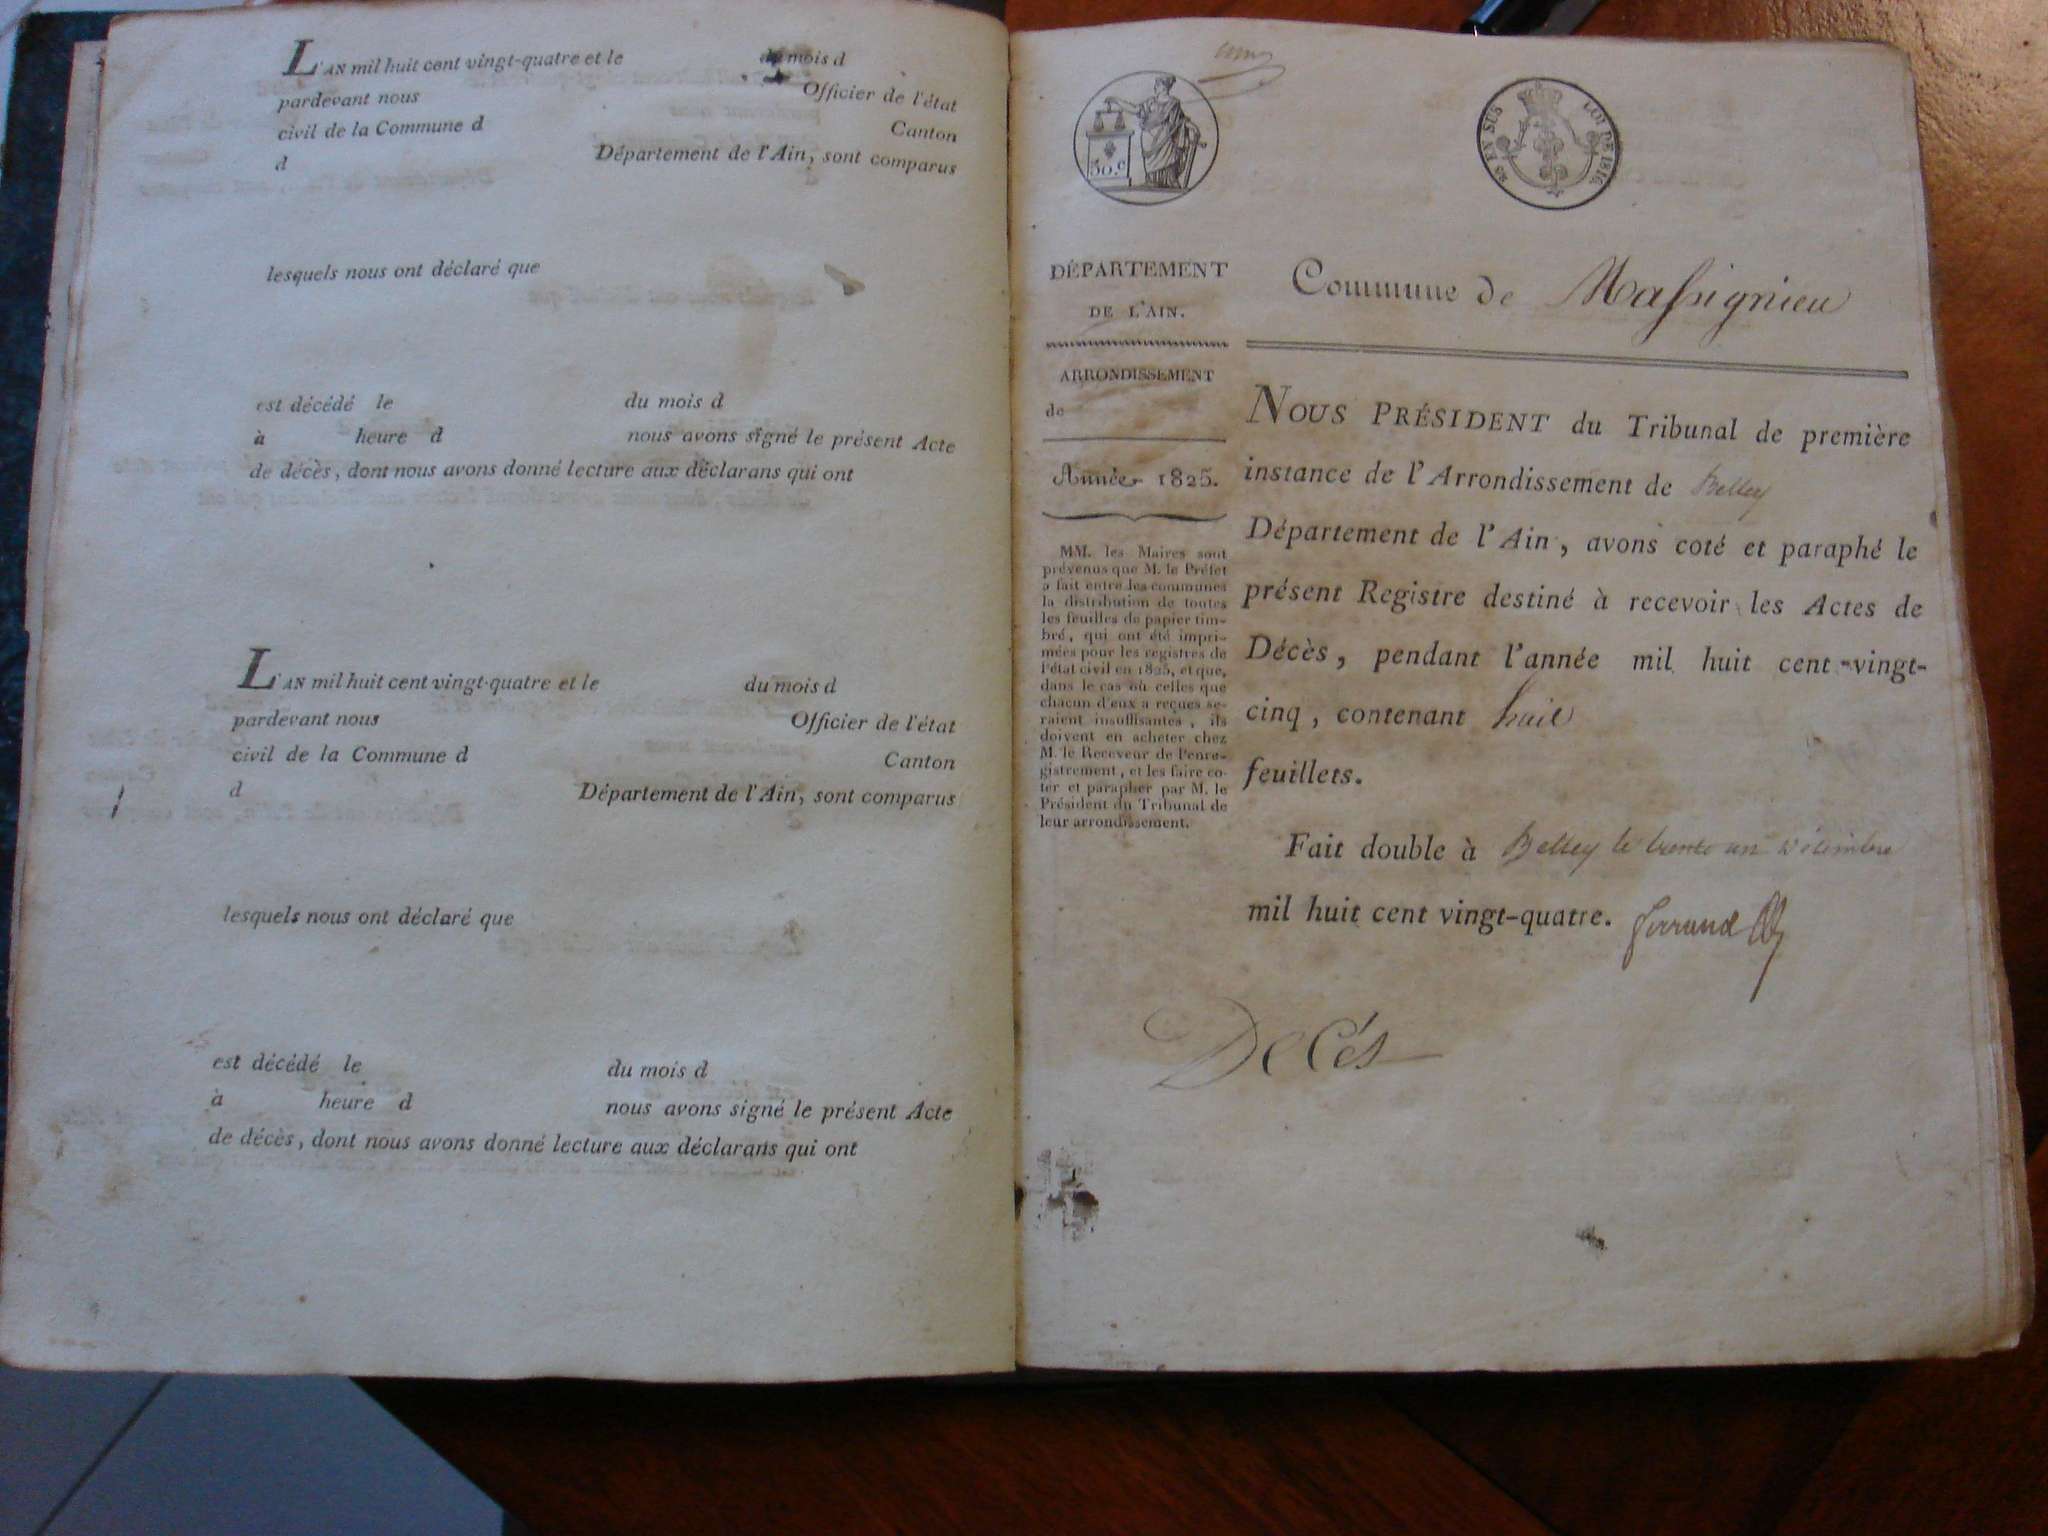 L'AN mil huit cent vingt-quatre et le du mois d
pardevant nous Officier de l'état
civil de la Commune d Canton
d Département de l'Ain, sont comparus
lesquels nous ont déclaré que
est décédé le du mois d
à heure d nous avons signé le présent Acte
de décès, dont nous avons donné lecture aux déclarans qui ont
L'AN mil huit cent vingt-quatre et le du mois d
pardevant nous Officier de l'état
civil de la Commune d Canton
d Département de l'Ain, sont comparus
lesquels nous ont déclaré que
est décédé le du mois d
à heure d nous avons signé le présent Acte
de décès, dont nous avons donné lecture aux déclarans qui ont
30.c
25 EN SUS LOI DE 1816.
DÉPARTEMENT
DE L'AIN.
ARRONDISSEMENT
de
Année 1825.
MM. les Maires sont
prévenus que M. le Préfet
a fait entre les communes
la distribution de toutes
les feuilles de papier tim-
bré, qui ont été impri-
mées pour les registres de
l'état civil en 1825, et que,
dans le cas où celles que
chacun d'eux a reçues se-
raient insuffisantes, ils
doivent en acheter chez
M. le Receveur de l'enre-
gistrement, et les faire co-
ter et parapher par M. le
Président du Tribunal de
leur arrondissement.
Commune de Massignieu
NOUS PRÉSIDENT du Tribunal de première
instance de l'Arrondissement de Belley
Département de l'Ain, avons coté et paraphé le
présent Registre destiné à recevoir les Actes de
Décès, pendant l'année mil huit cent vingt-
cinq, contenant huit
feuillets.
Fait double à Belley le trente un décembre
mil huit cent vingt-quatre.
Décés